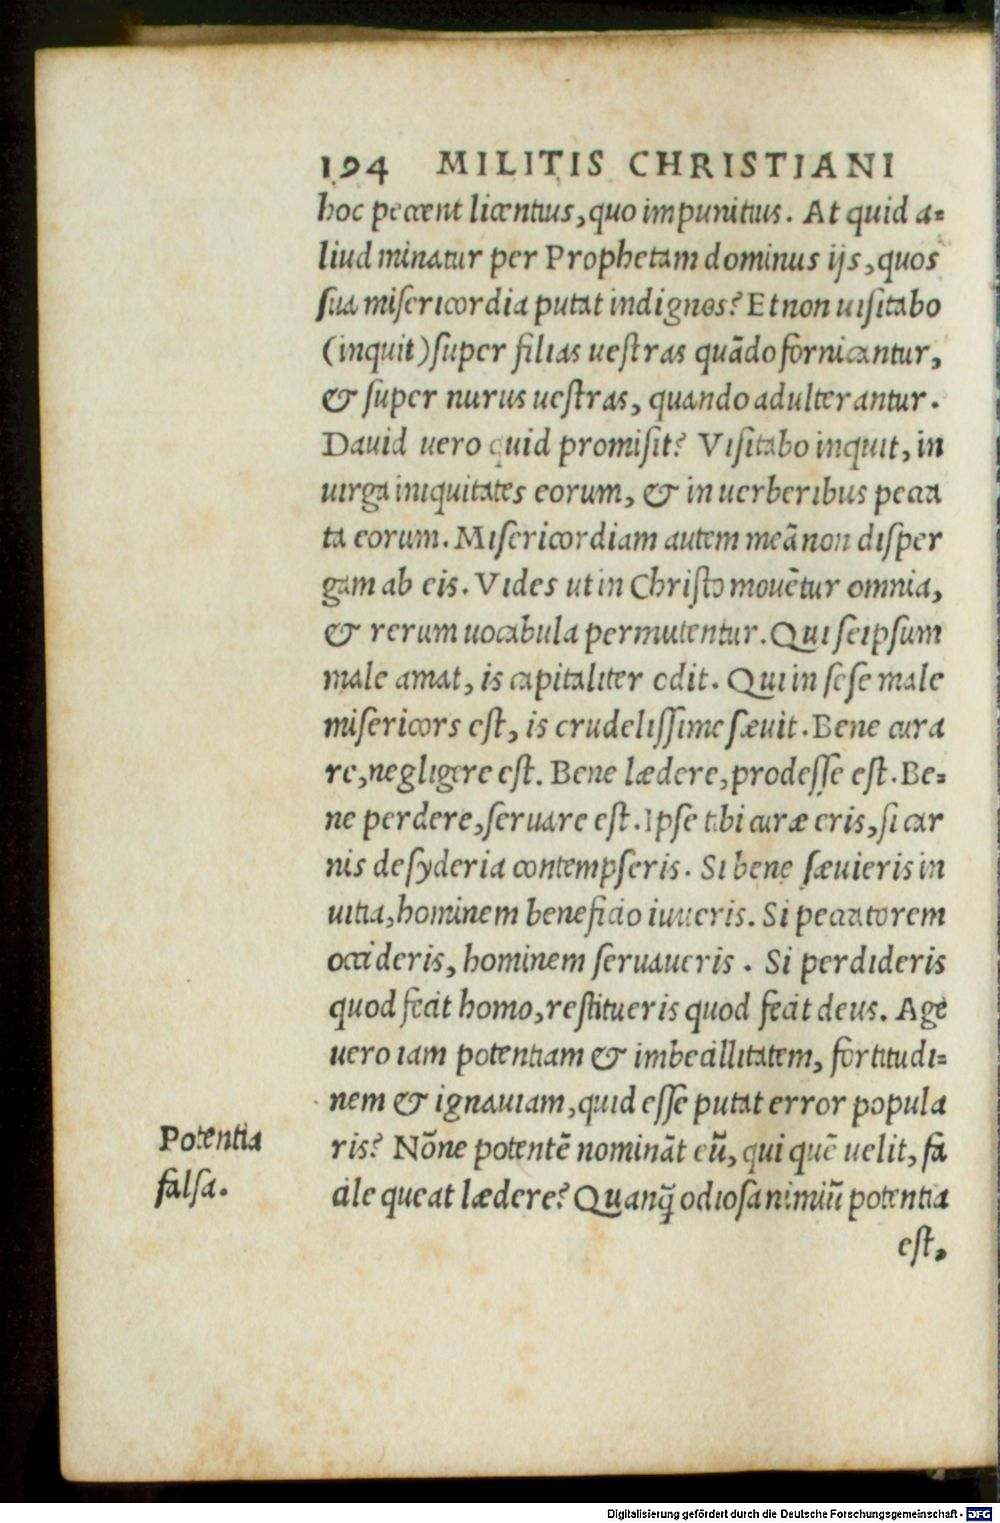 194 MILITIS CHRISTIANI
hoc peccent licentius, quo impunitius. At quid a-
liud minatur per Prophetam dominus ijs, quos
sua misericordia putat indignos? Et non uisitabo
(inquit) super filias uestras quãdo fornicantur,
& super nurus uestras, quando adulterantur.
Dauid uero quid promisit? Visitabo inquit, in
uirga iniquitates eorum, & in uerberibus pecca
ta eorum. Misericordiam autem meã non disper
gam ab eis. Vides ut in Christo mouẽtur omnia,
& rerum uocabula permutentur. Qui seipsum
male amat, is capitaliter odit. Qui in sese male
misericors est, is crudelissime sæuit. Bene cura
re, negligere est. Bene lædere, prodesse est. Be-
ne perdere, seruare est. Ipse tibi curæ eris, si car
nis desyderia contempseris. Si bene sæuieris in
uitia, hominem beneficio iuueris. Si peccatorem
occideris, hominem seruaueris. Si perdideris
quod fecit homo, restitueris quod fecit deus. Age
uero iam potentiam & imbecillitatem, fortitudi-
nem & ignauiam, quid esse putat error popula
Potentia falsa.
ris? Nõne potentẽ nominãt eũ, qui quẽ uelit, fa
cile queat lædere? Quanq̃ odiosa nimiũ potentia
est,
Digitalisierung gefördert durch die Deutsche Forschungsgemeinschaft - DFG